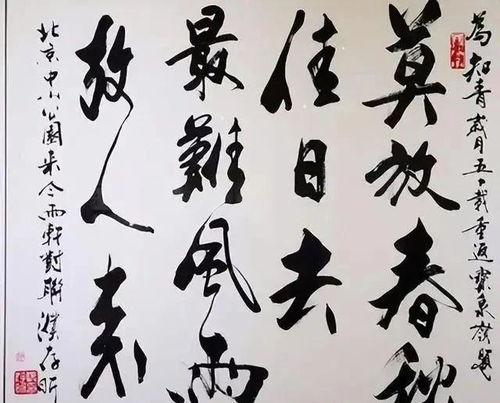 為知青歲月五十載重返寶泉嶺題
莫放春秋
佳日去
最難風雨
故人来
北京中山公園来今雨軒對聯 濮存昕